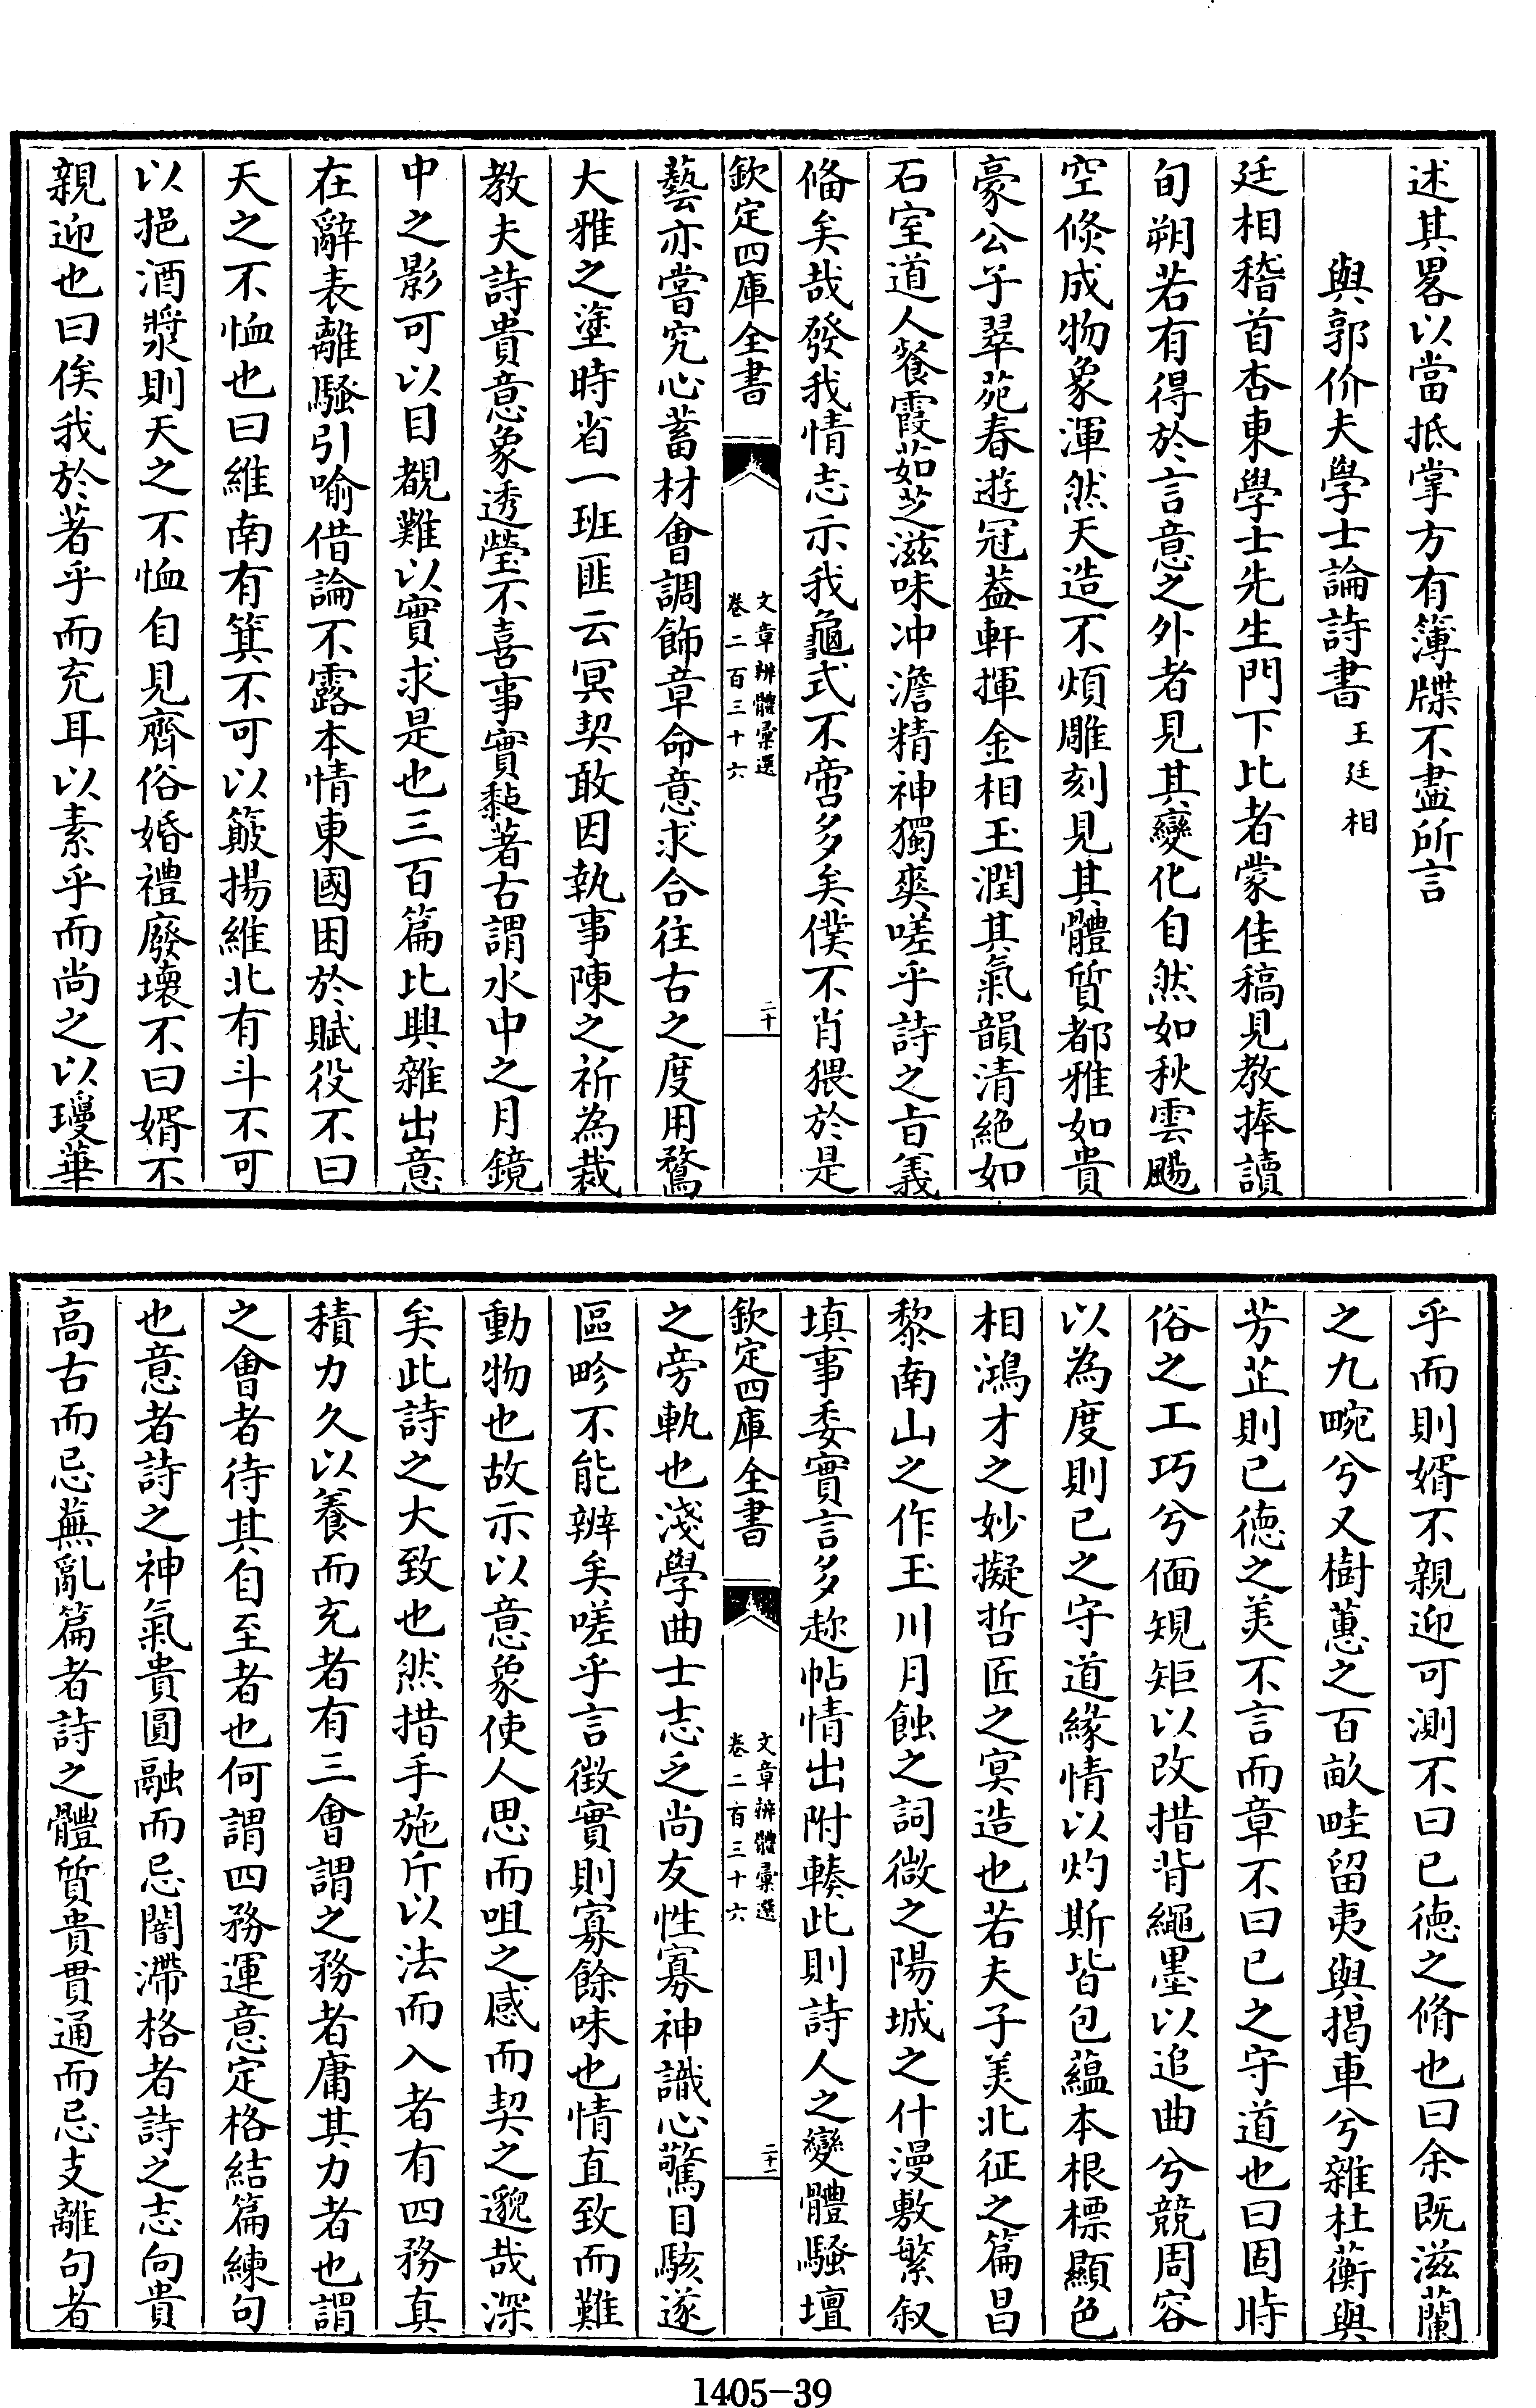 述其畧以當抵掌方有簿牒不盡所言
與郭价夫學士論詩書 王廷相
廷相稽首杏東學士先生門下比者蒙佳稿見教捧讀
旬朔若有得於言意之外者見其變化自然如秋雲颺
空倐成物象渾然天造不煩雕刻見其體質都雅如貴
豪公子翠苑春遊冠葢軒揮金相玉潤其氣韻清絶如
石室道人餐霞茹芝滋味冲澹精神獨爽嗟乎詩之㫖義
俻矣哉發我情志示我龜式不啻多矣僕不肖猥於是
欽定四庫全書
文章辨體彚選
卷二百三十六
二十
藝亦嘗究心蓄材會調飾章命意求合往古之度用騖
大雅之塗時省一班匪云冥契敢因執事陳之祈為裁
教夫詩貴意象透瑩不喜事實黏著古謂水中之月鏡
中之影可以目覩難以實求是也三百篇比興雜出意
在辭表離騷引喻借論不露本情東國困於賦役不曰
天之不恤也曰維南有箕不可以簸揚維北有斗不可
以挹酒漿則天之不恤自見齊俗婚禮廢壞不曰婿不
親迎也曰俟我於著乎而充耳以素乎而尚之以瓊華
乎而則婿不親迎可測不曰已德之脩也曰余既滋蘭
之九畹兮又樹蕙之百畝畦留夷與揭車兮雜杜蘅與
芳芷則已德之美不言而章不曰已之守道也曰固時
俗之工巧兮偭規矩以改措背繩墨以追曲兮競周容
以為度則已之守道緣情以灼斯皆包藴本根標顯色
相鴻才之妙擬哲匠之冥造也若夫子美北征之篇昌
黎南山之作玉川月蝕之詞微之陽城之什漫敷繁叙
填事委實言多趂帖情出附輳此則詩人之變體騷壇
欽定四庫全書
文章辨體彚選
卷二百三十六
二十一
之旁軌也淺學曲士志乏尚友性寡神識心驚目駭遂
區畛不能辨矣嗟乎言徵實則寡餘味也情直致而難
動物也故示以意象使人思而咀之感而契之邈哉深
矣此詩之大致也然措手施斤以法而入者有四務真
積力久以養而充者有三會謂之務者庸其力者也謂
之會者待其自至者也何謂四務運意定格結篇練句
也意者詩之神氣貴圓融而忌闇滯格者詩之志向貴
高古而忌蕪亂篇者詩之體質貴貫通而忌支離句者
1405-39